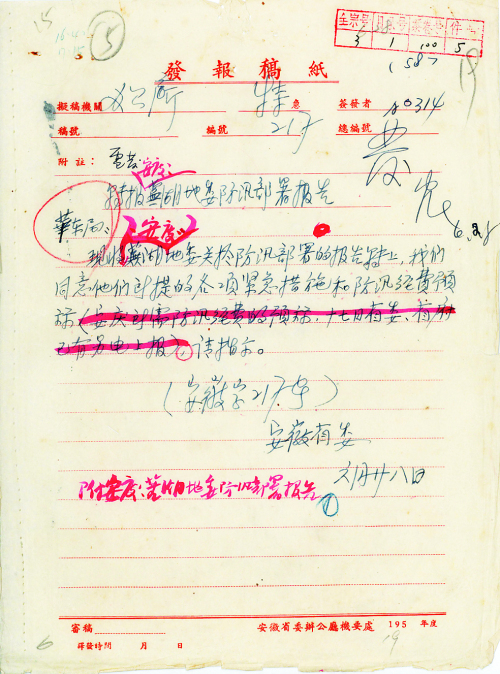 15
⑤
全宗号 目录号 案卷号 件号
3 1 100 5
(58)
發報稿紙
擬稿機關 特急 簽發者 №0314
稿號 編號 217 總編號
附註：電发
安庆
转报芜湖地委防汛部署报告
6.28
華东局：
安庆
现将芜湖地委关於防汛部署的报告转上，我们
同意他们所提的各项紧急措施和防汛经费预
标（安庆所需防汛经费的预标，十七日省委、省府
已有另电上报），请指示。
（安徽字217号）
安徽省委
六月廿八日
附安庆、芜湖地委防汛部署报告
審稿 安徽省委辦公廳機要處 195 年度
譯發時間 月 日
6 19